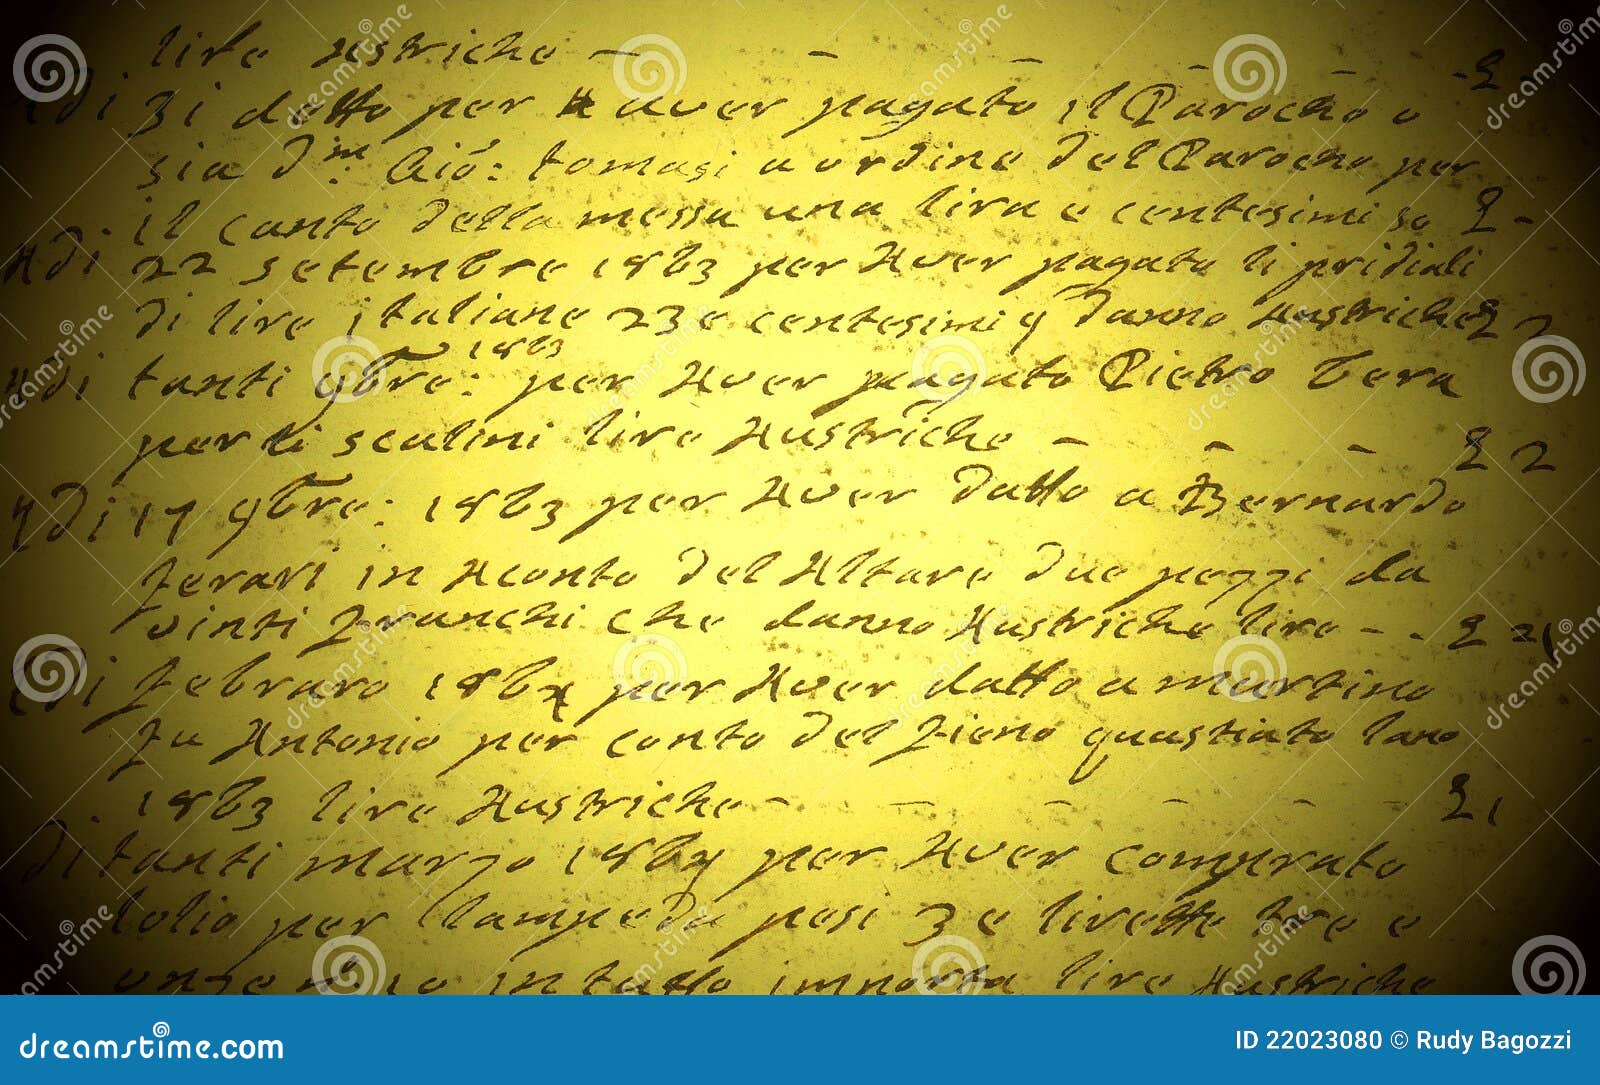 lire Austriche — — — — — — £
Adi 31 detto per Aver pagato il Parocho o
sia Dm: Gió: tomasi a ordine del Parocho per
il canto della messa una lira e centesimi 50 £ -
Adi 22 setembre 1863 per Aver pagato li pridiali
di lire italiane 23 e centesimi 9 danno Austriche £ 2
Adi tanti 9bre: 1863 per Aver pagato Pietro
per li scalini lire Austriche — — — £ 2
Adi 17 9bre: 1863 per Aver datto a Bernardo
ferari in Aconto del Altare due pezzi da
vinti franchi che danno Austriche lire - - £ 2
Di febraro 1864 per Aver datto a martino
fu Antonio per conto del fieno quastiato lano
1863 lire Austriche - - - - - - £ 1
di tanti marzo 1864 per Aver comprato
lolio per lampeda pesi 3 e lirette tre e
in tutto importa lire Austriche
dreamstime
dreamstime
dreamstime
dreamstime
dreamstime.com
ID 22023080 © Rudy Bagozzi